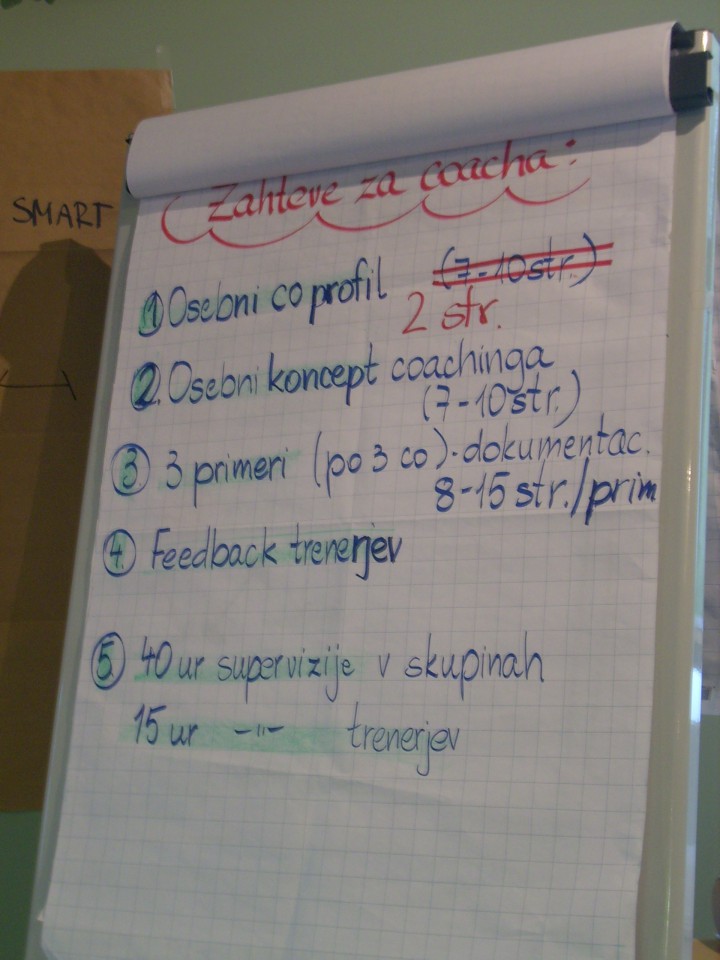 SMART
Zahteve za coacha:
1 Osebni co profil (7-10 str.)
2 str.
2. Osebni koncept coachinga
(7-10 str.)
3 3 primeri (po 3 co). dokumentac.
8-15 str./prim
4. Feedback trenerjev
5. 40 ur supervizije v skupinah
15 ur -"- trenerjev